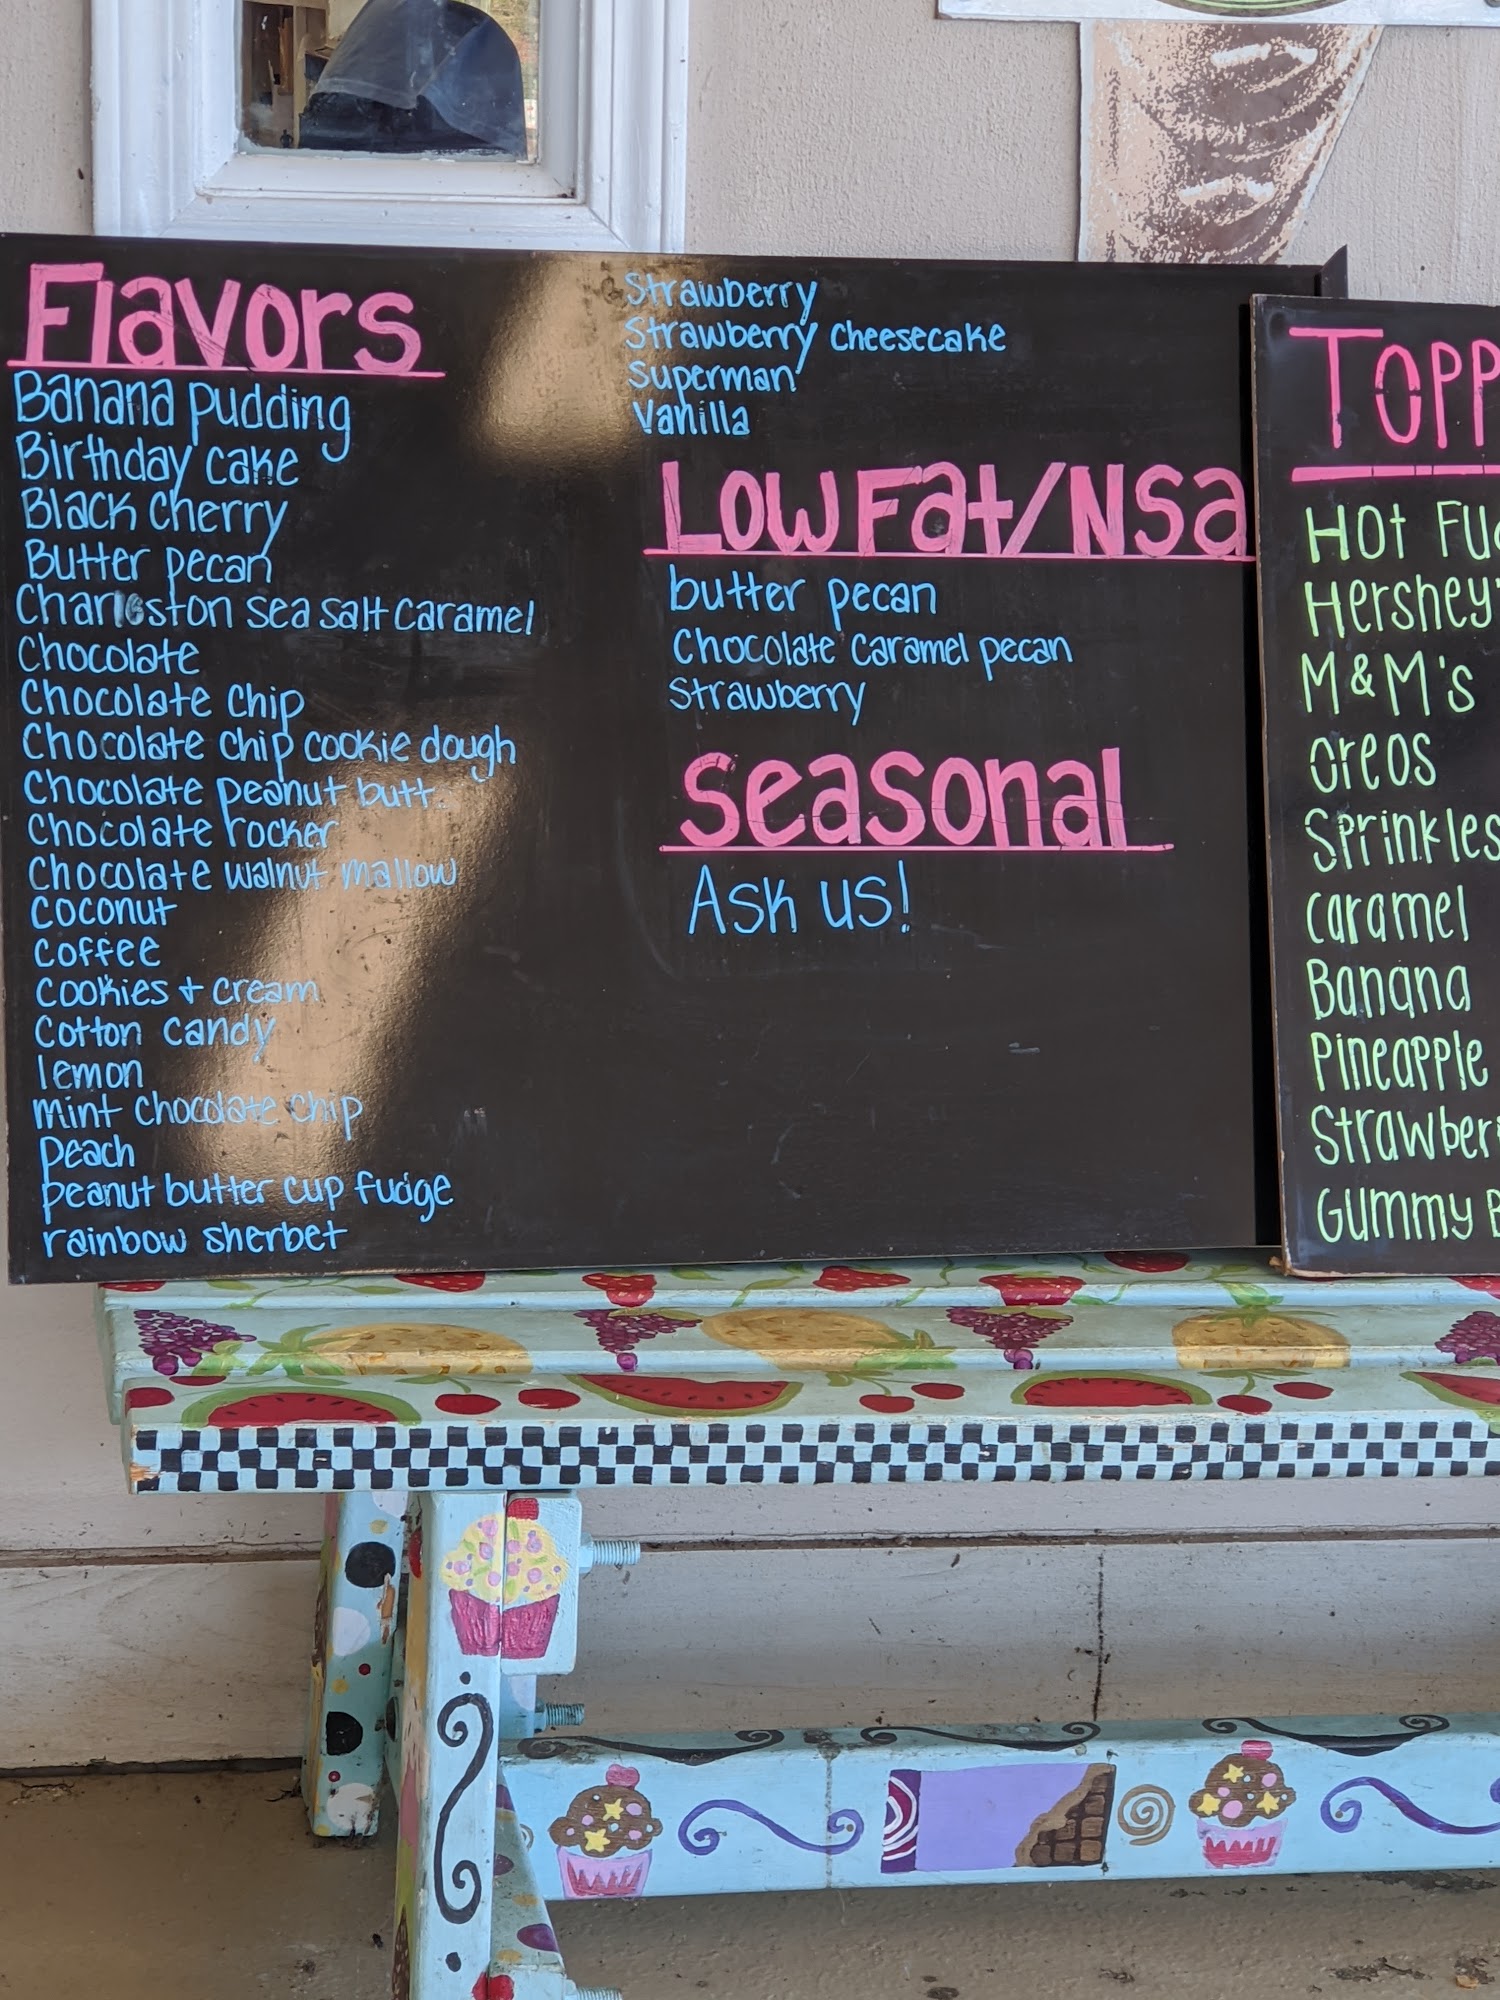 Flavors
Banana pudding
Birthday cake
Black cherry
Butter pecan
Charleston sea salt caramel
Chocolate
Chocolate chip
Chocolate chip cookie dough
Chocolate peanut butt
Chocolate rocker
Chocolate walnut mallow
coconut
coffee
cookies + cream
cotton candy
lemon
mint chocolate chip
peach
peanut butter cup fudge
rainbow sherbet
Strawberry
Strawberry cheesecake
Superman
Vanilla
Low Fat/NSA
butter pecan
Chocolate caramel pecan
Strawberry
Seasonal
Ask us!
TOPP
HOt Fud
Hershey's
M&M's
oreos
Sprinkles
caramel
Banana
Pineapple
Strawberr
Gummy B